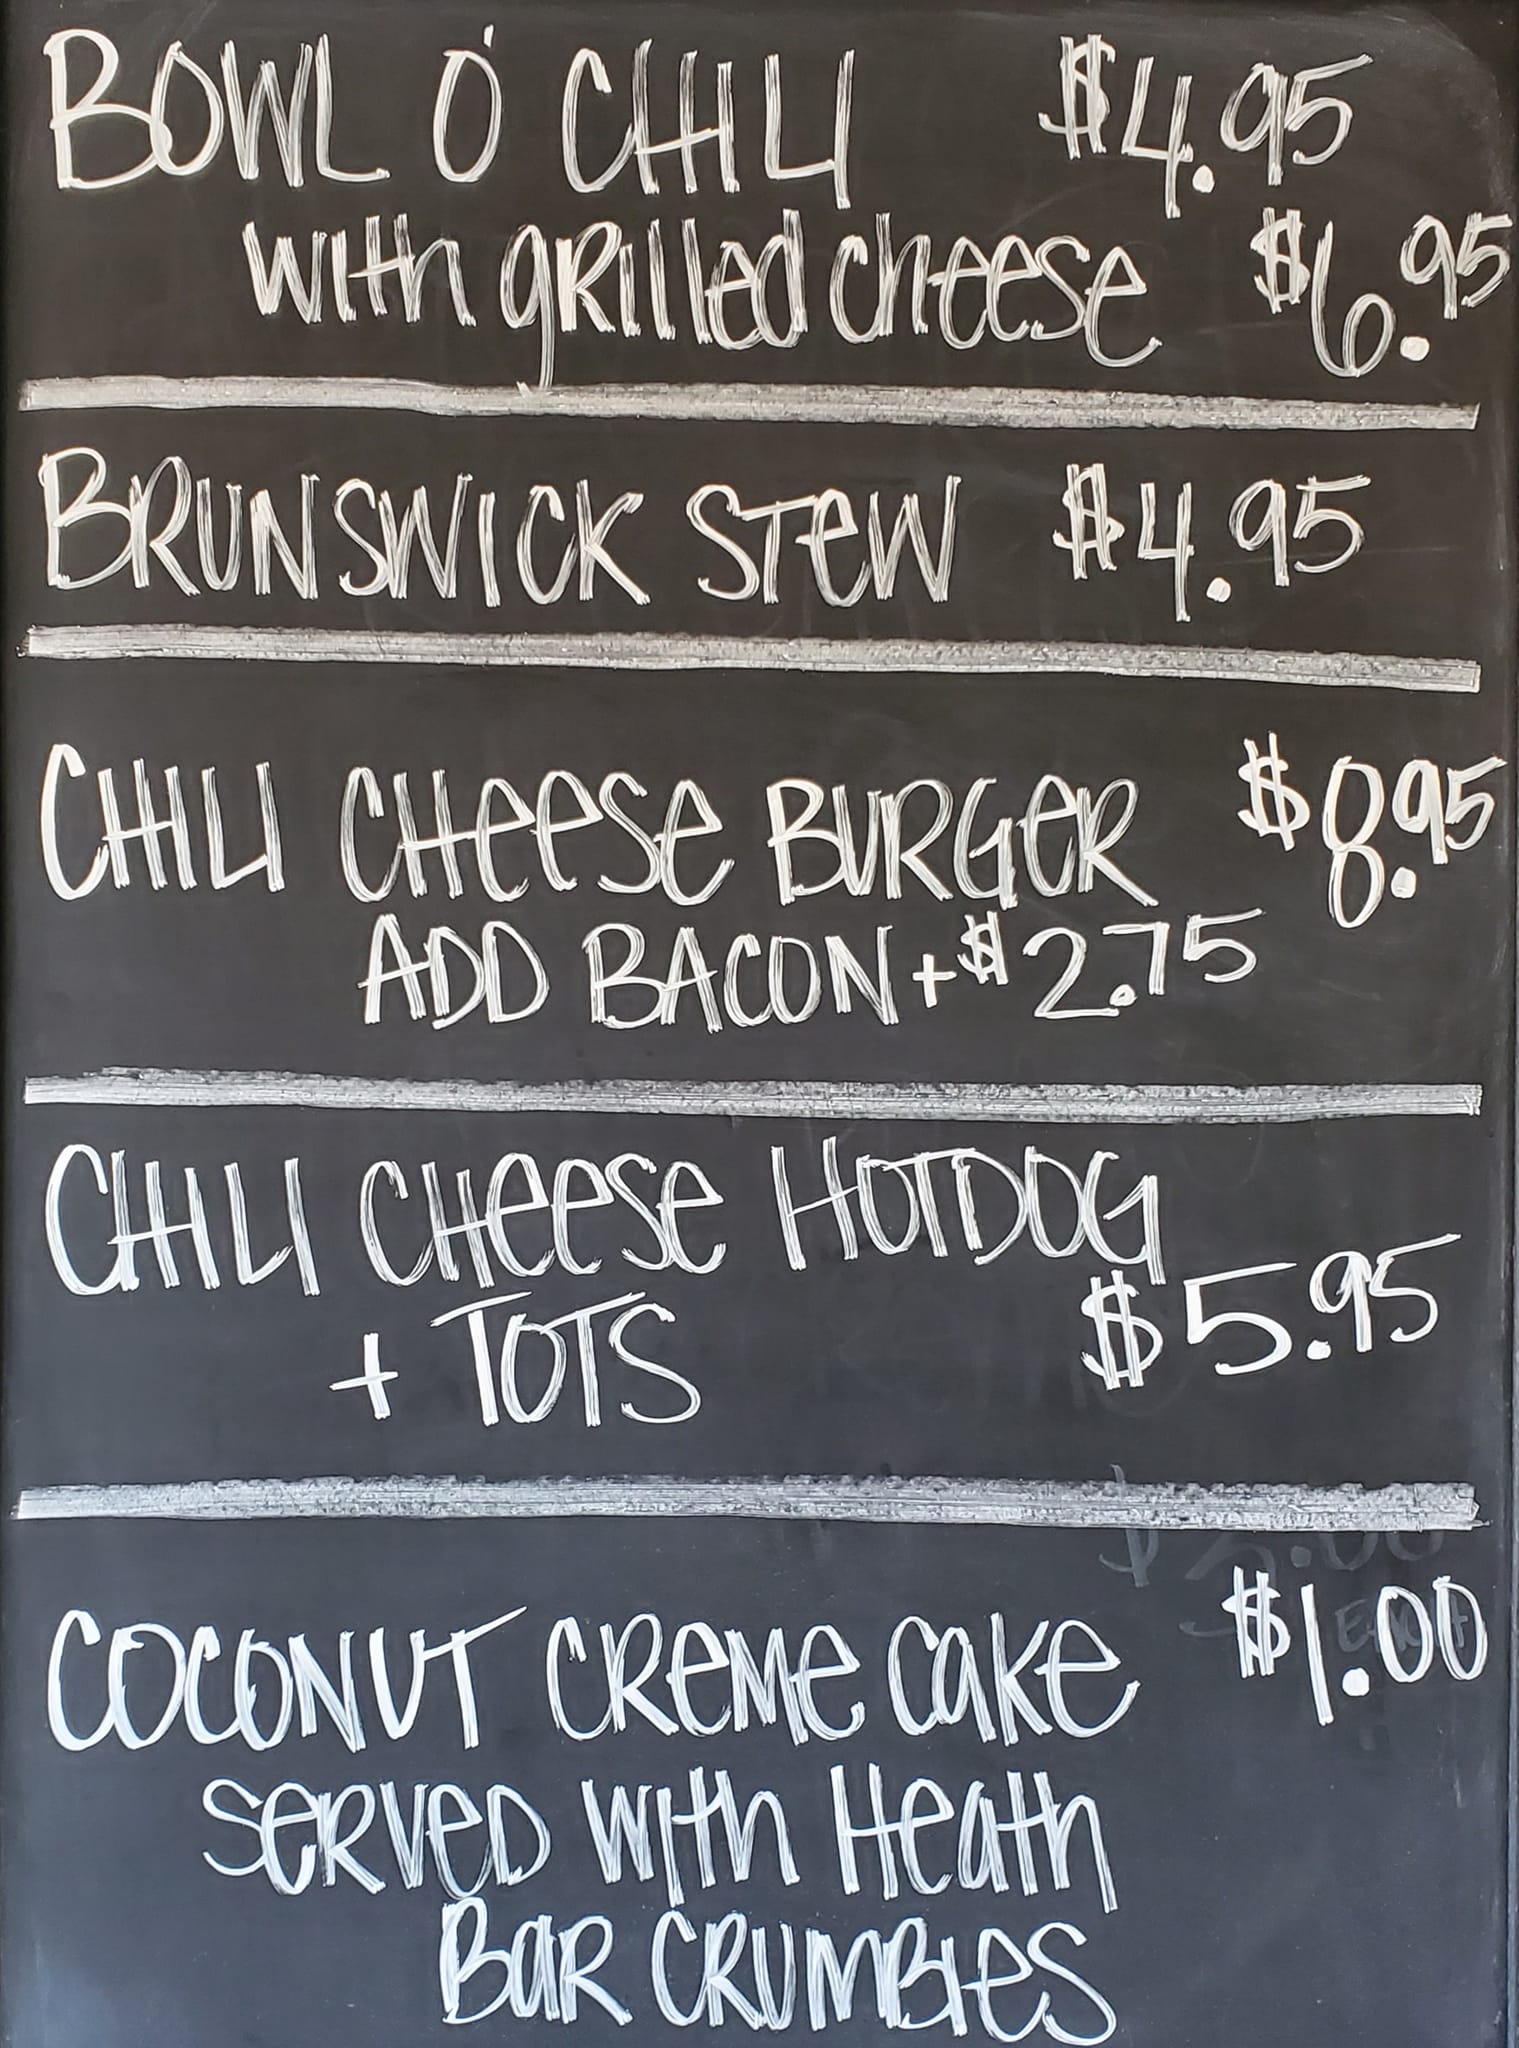 BOWL O' CHILI $4.95
with grilled cheese $6.95
BRUNSWICK STEW $4.95
CHILI CHEESE BURGER $8.95
ADD BACON + $2.75
CHILI CHEESE HOTDOG
+ TOTS $5.95
COCONUT CREME CAKE $1.00
SERVED WITH HEATH
BAR CRUMBLES